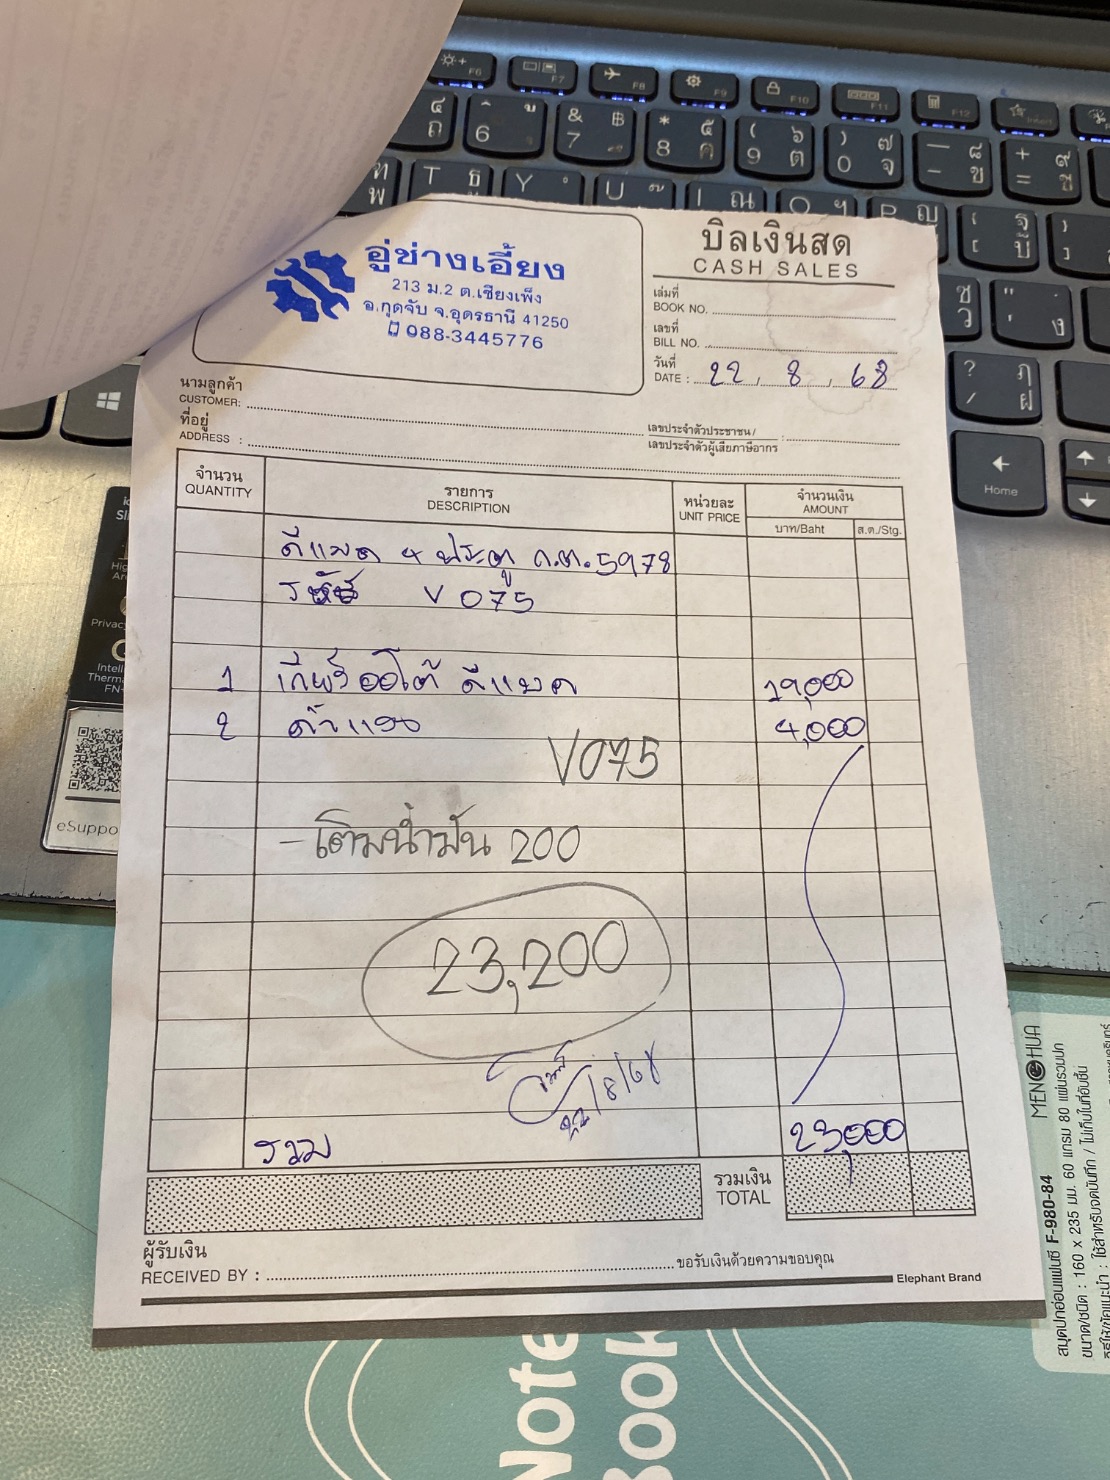 อู่ช่างเอี้ยง
213 ม.2 ต.เชียงเพ็ง
อ.กุดจับ จ.อุดรธานี 41250
088-3445776
บิลเงินสด
CASH SALES
เล่มที่
BOOK NO.
เลขที่
BILL NO.
วันที่
DATE : 22, 8, 68
นามลูกค้า
CUSTOMER:
ที่อยู่
ADDRESS :
เลขประจำตัวประชาชน/
เลขประจำตัวผู้เสียภาษีอากร :
จำนวน
QUANTITY
รายการ
DESCRIPTION
หน่วยละ
UNIT PRICE
จำนวนเงิน
AMOUNT
บาท/Baht ส.ต./Stg.
ดีแมค 4 ประตู ก.ต.5978
รหัส V 075
1 เกียร์ออโต้ ดีแมค 19,000
2 ค่าแรง 4,000
V075
- เติมน้ำมัน 200
23,200
22/8/68
รวม 23,000
รวมเงิน
TOTAL
ผู้รับเงิน
RECEIVED BY :
ขอรับเงินด้วยความขอบคุณ
Elephant Brand
MENOHUA
สมุดปกอ่อนแฟนซี F-980-84
ขนาด/ชนิด : 160 x 235 มม. 60 แกรม 80 แผ่นรวมปก
วิธีใช้/ข้อแนะนำ : ใช้สำหรับจดบันทึก / ไม่เก็บในที่อับชื้น
Note
Book
eSuppo
Home